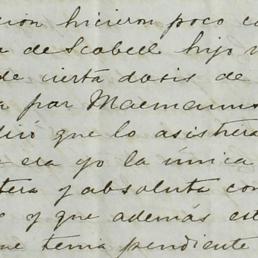 cion hicieron poco ca
a de Scobell hijo n
de cierta dosis de
a por Macmanus
dió que lo asistiera
era yo la única
tera y absoluta con
y que además est
ue tema pendiente